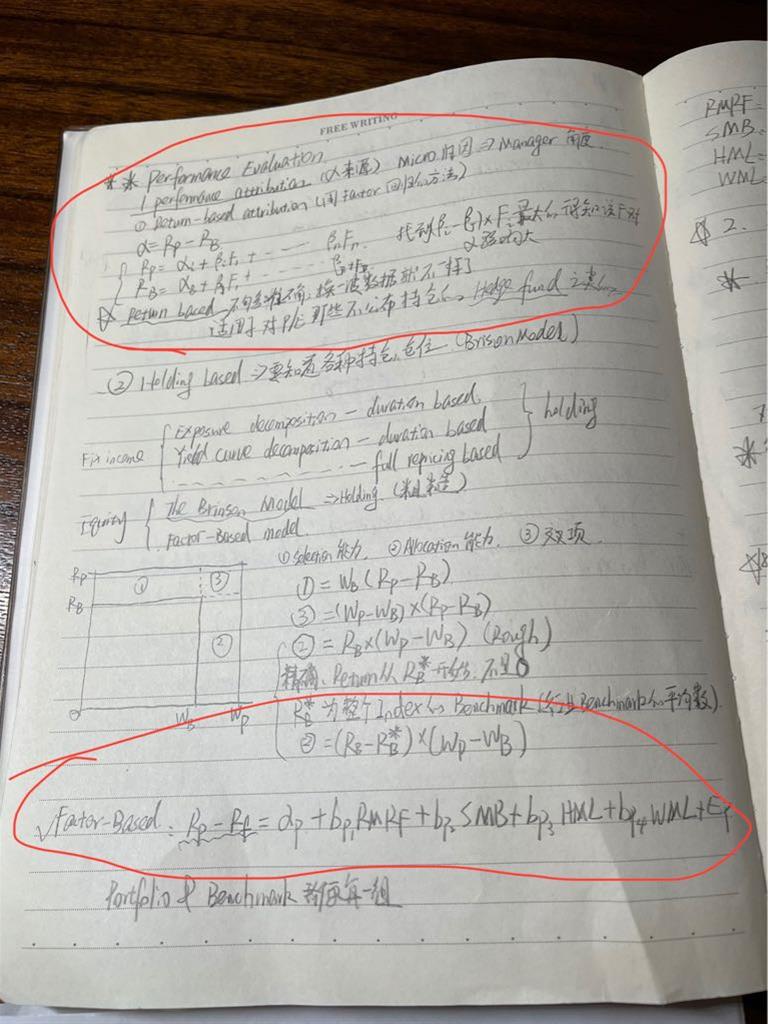 FREE WRITING
** Performance Evaluation
1 performance attribution (α来源) Micro归因 ⇒ Manager 角度.
① Return-based attribution (用factor回归的方法)
α = Rp - RB
Rp = αi + βiFi + ------ βnFn. 找到(βi-βj)×Fi最大的, 得知该F对
RB = αB + βjFi + ------ α影响大
☆ Return based 不够准确, 换一波数据就不一样了
适用于对P/E 那些不公布持仓的, Hedge fund 之类的
② Holding based ⇒ 要知道各种持仓, 仓位. (Brison Model)
Fix income { Exposure decomposition — duration based.
Yield curve decomposition — duration based
- - - - - - - — full repricing based } holding
Equity { The Brinson Model ⇒ Holding. (粗糙)
Factor-Based model.
① Selection 能力. ② Allocation 能力. ③ 交叉项.
Rp ① ③
RB
②
0 WB Wp
① = WB (Rp-RB)
③ = (Wp-WB) × (Rp-RB)
② = RB × (Wp-WB) (Rough)
精确. Return 从 RB* 开始的, 不是0
RB* 为整个Index的Benchmark (行业Benchmark的平均数).
② = (RB-RB*) × (Wp-WB)
√ Factor-Based: Rp-Rf = αp + bp1 RMRF + bp2 SMB + bp3 HML + bp4 WML + Ep
Portfolio & Benchmark 都做每一组
RMRF=
SMB=
HML=
WML=
☆ 2.